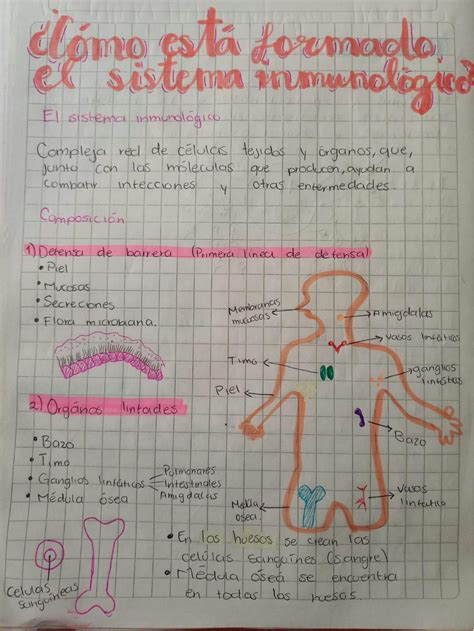 ¿Cómo está formado
el sistema inmunológico?
El sistema inmunológico
Compleja red de células tejidos y órganos, que,
junto con las móleculas que producen, ayudan a
combatir infecciones y otras enfermedades.
Composición
1) Defensa de barrera (Primera linea de defensa)
• Piel
• Mucosas
• Secreciones
• Flora microbiana.
Membranas
mucosas
Amigdalas
vasos linfáticos
Timo
ganglios
linfáticos
Piel
Bazo
Medula
ósea
Vasos
linfatico
2) Orgános linfades
• Bazo
• Timo
• Ganglios linfáticos
Pulmonares
Intestinales
Amigdalas
• Médula ósea
• En los huesos se crean las
células sanguines (sangre)
• Médula ósea se encuentra
en todos los huesos.
Celulas
sanguineas